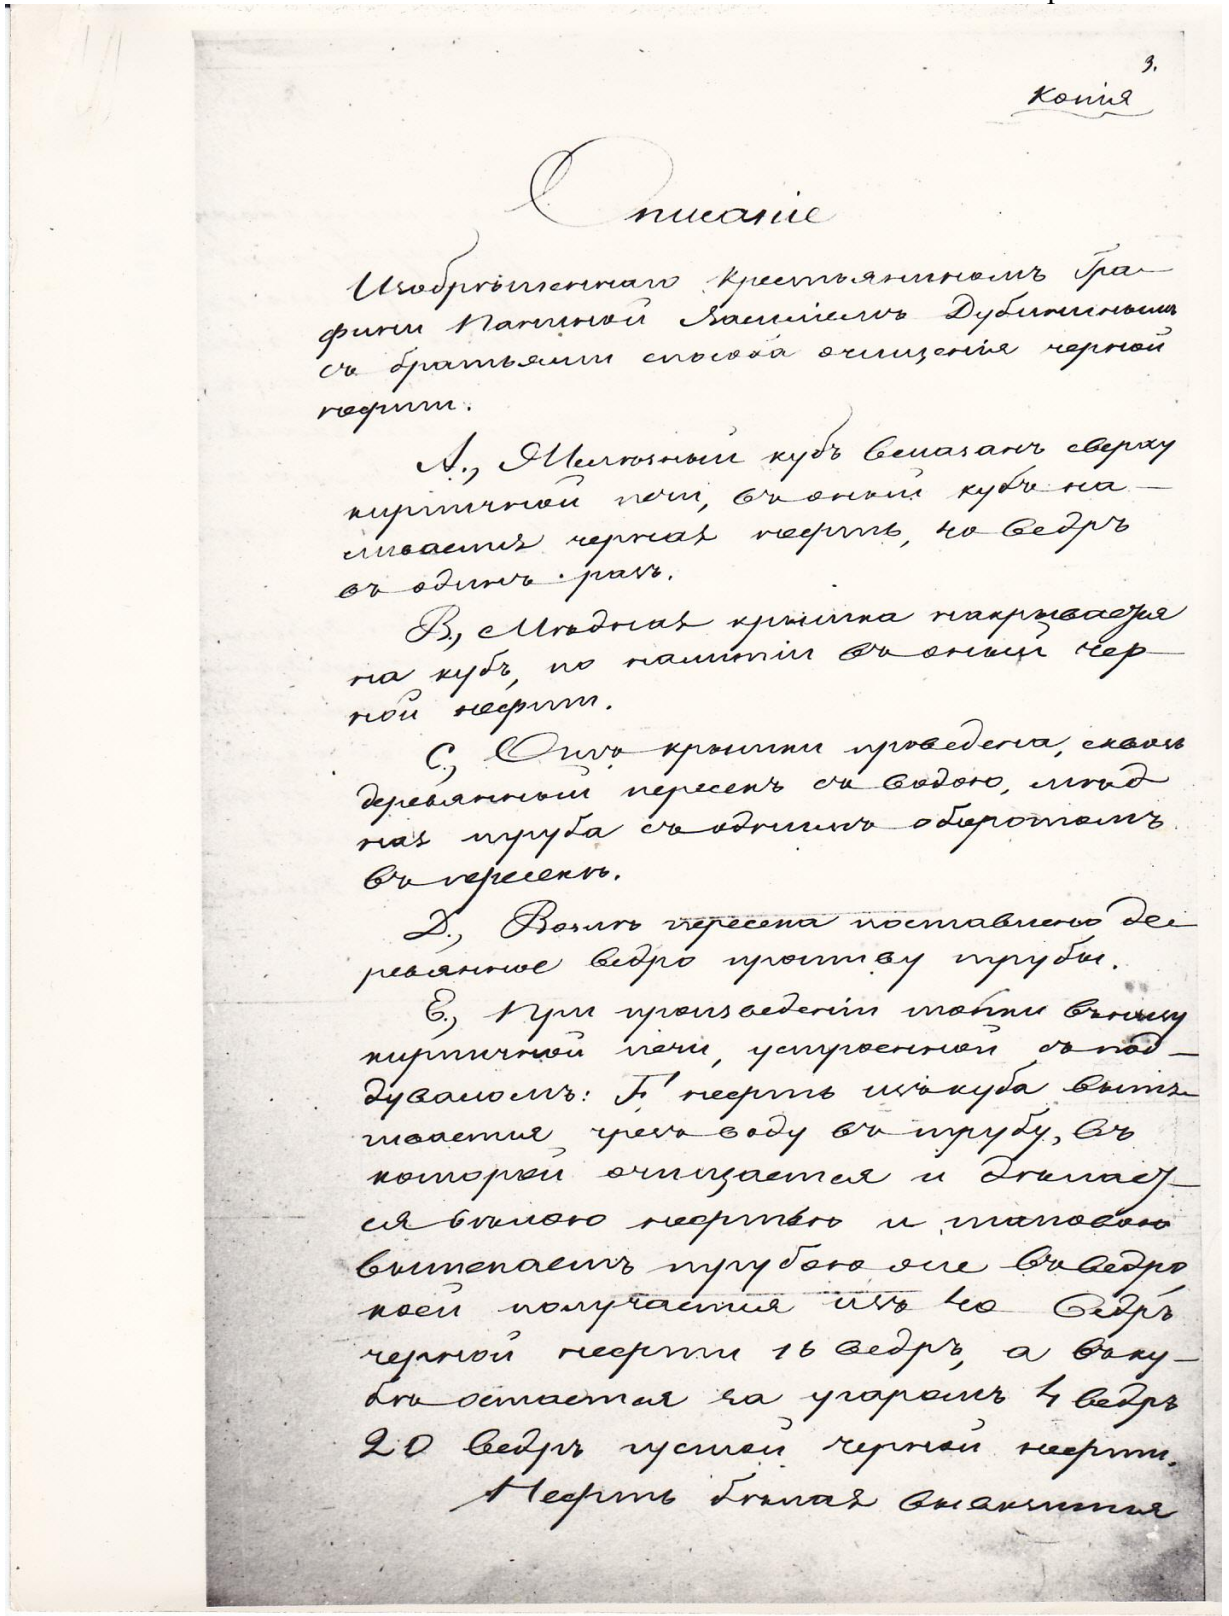 3.
Копія
Описаніе
Изобрѣтеннаго крестьяниномъ Гра-
фини Паниной Василіемъ Дубининымъ
съ братьями способа очищенія черной
нефти.
А., Желѣзный кубъ вмазанъ сверху
кирпичной печи, въ оный кубъ на-
ливается черная нефть, 40 ведръ
въ одинъ разъ.
В., Мѣдная крышка накрывается
на кубъ, по налитіи въ оный чер-
ной нефти.
С., Отъ крышки проведена, сквозь
деревянный пересекъ съ водою, мѣд
ная труба съ однимъ оборотомъ
въ пересекѣ.
D., Возлѣ пересека поставлено де-
ревянное ведро противу трубы.
Е., При произведеніи топки внизу
кирпичной печи, устроенной съ под-
дуваломъ: F нефть изъ куба вытя-
гивается чрезъ воду въ трубу, въ
которой очищается и дѣлает-
ся бѣлою нефтью и таковою
вытекаетъ трубою же въ ведро,
коей получается изъ 40 ведръ
черной нефти 16 ведръ, а въ ку-
бѣ остается за угаромъ 4 ведръ
20 ведръ густой черной нефти.
Нефть бѣлая